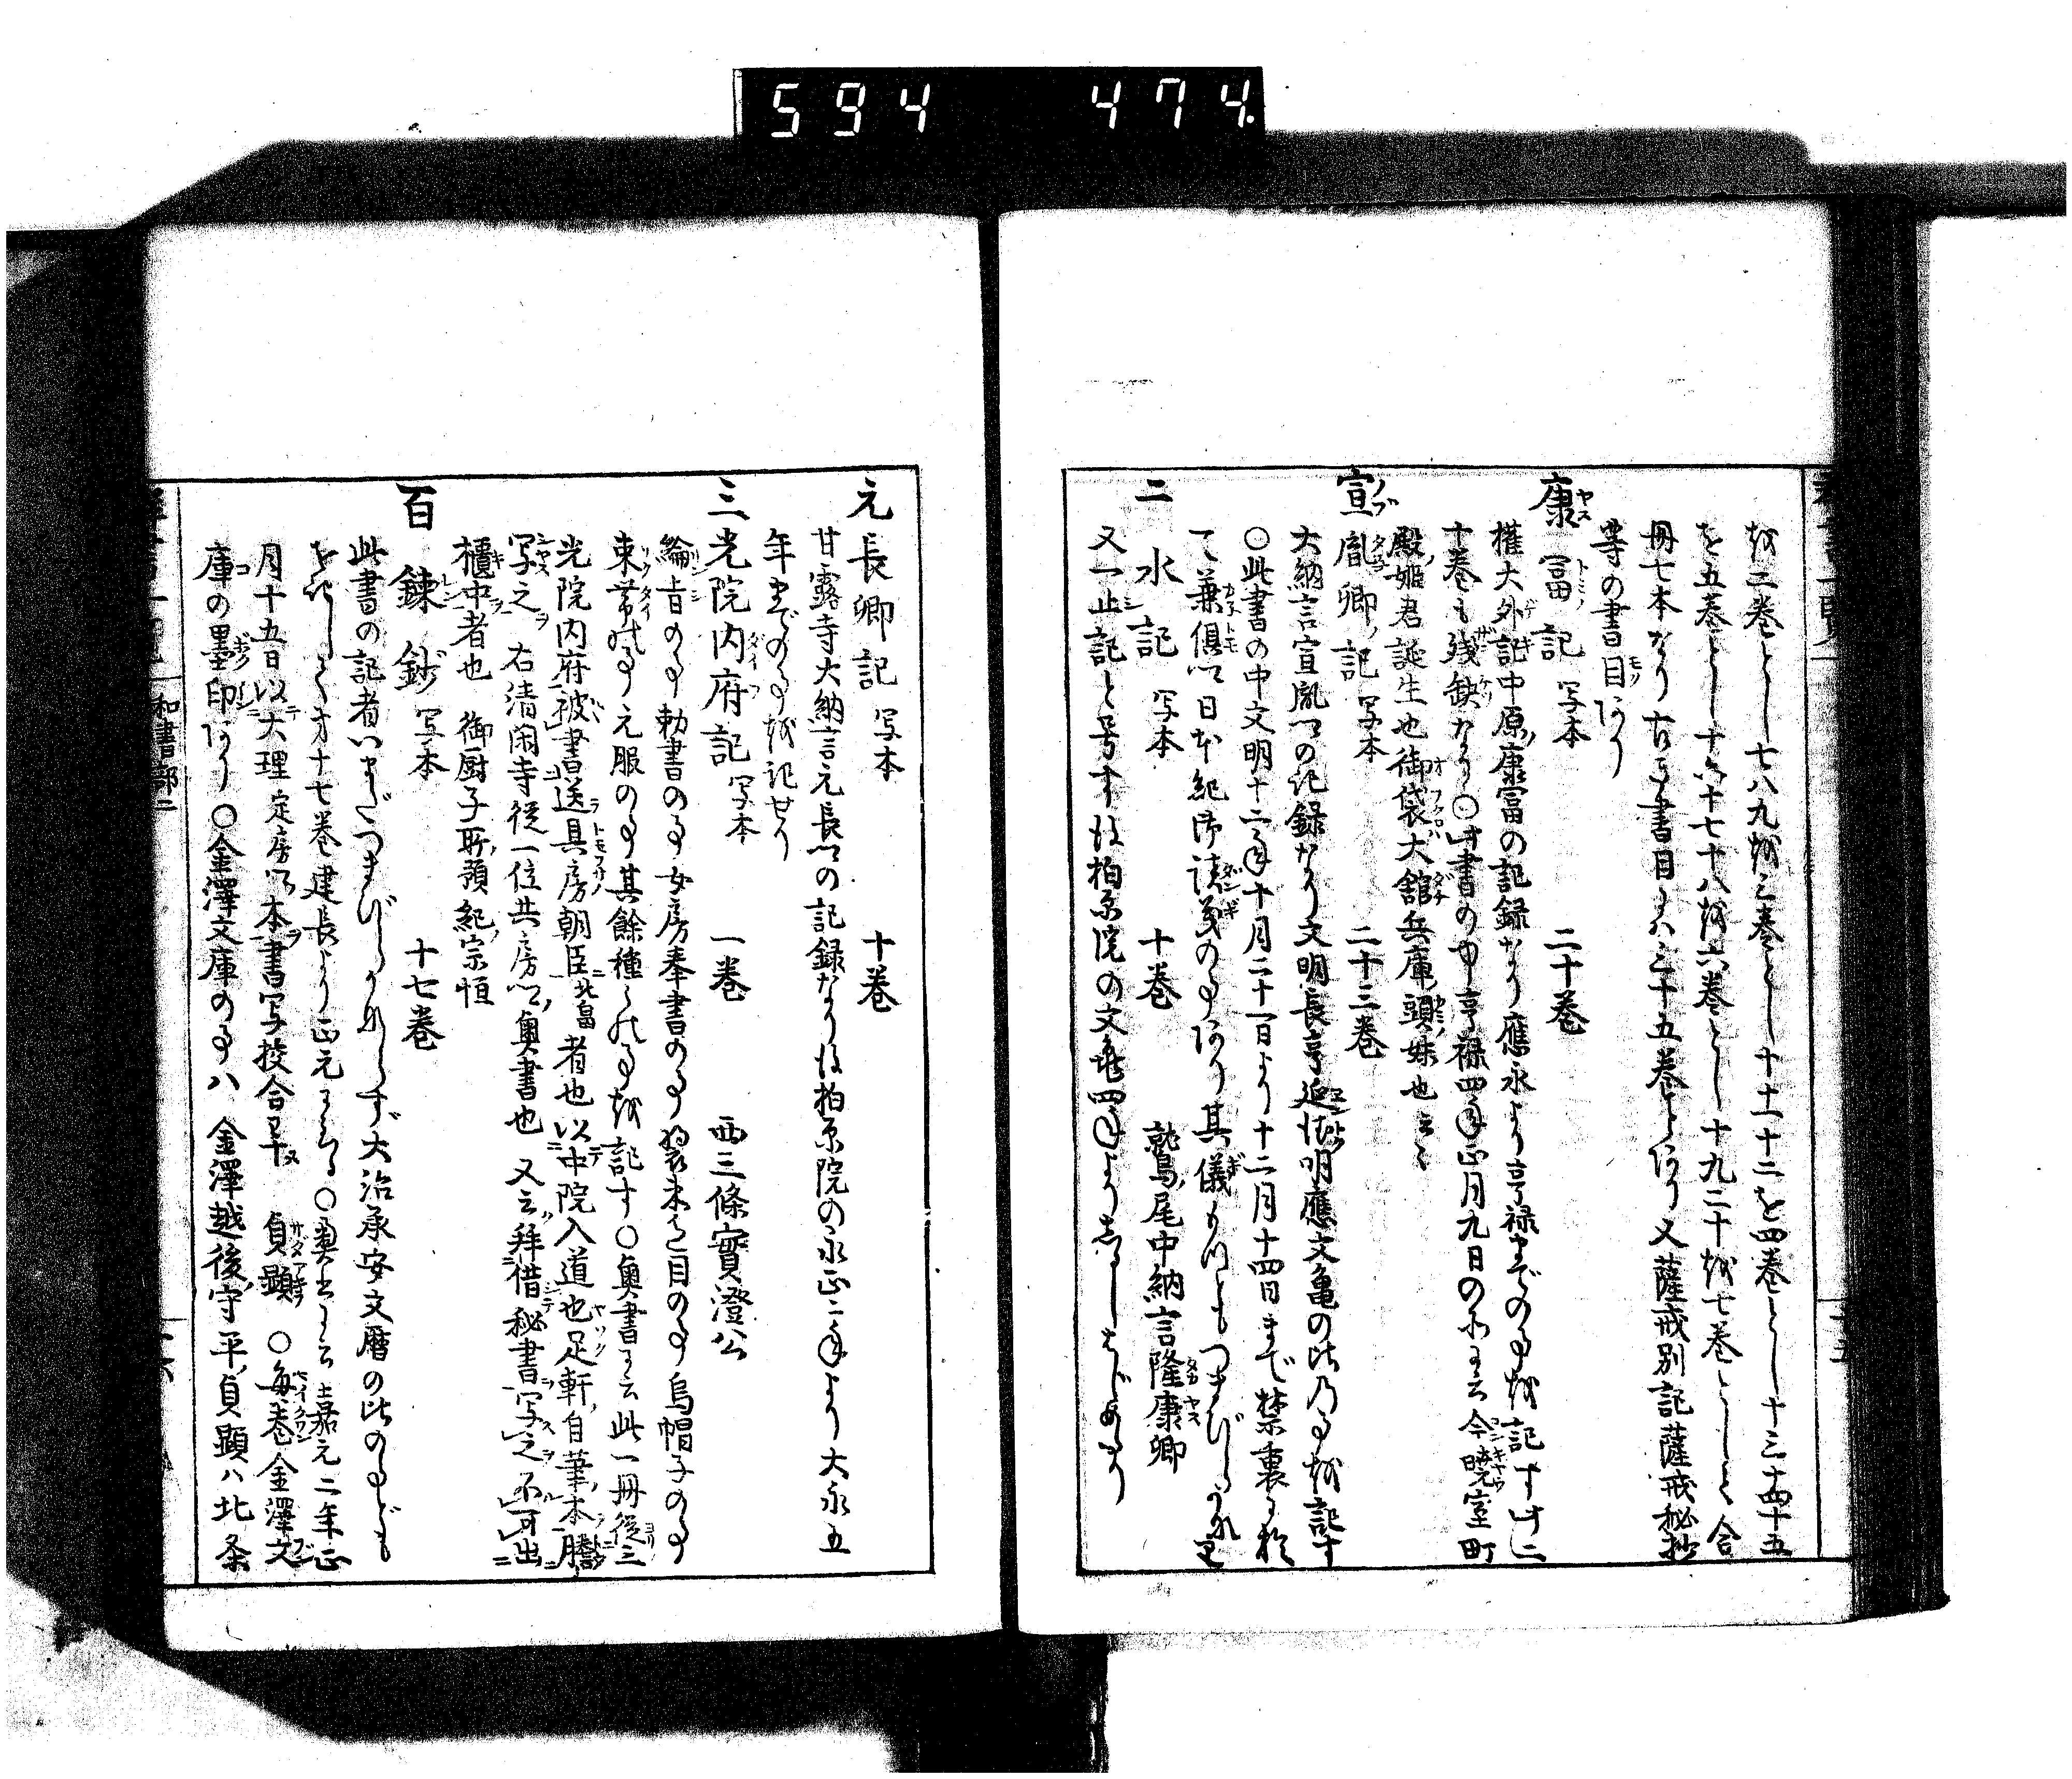 594 474.
を二巻とし七八九を三巻とし十十一十二を四巻とし十三十四十五
を五巻とし十六十七十八を六巻とし十九二十を七巻としして合
冊七本なり古き書目には三十五巻とあり又薩戒別記薩戒秘抄
等の書目あり
康富記 写本 二十巻
権大外記中原康富の記録なり應永より享禄までの事を記す此二
十巻も残缺なり〇此書の中享禄四年正月九日の所に云今曉室町
殿姫君誕生也御袋大舘兵庫頭妹也云々
宣胤卿記 写本 二十三巻
大納言宣胤卿の記録なり文明長享延徳明應文亀の比乃事を記す
〇此書の中文明十二年十月二十一日より十二月十四日まで禁裏に於
て兼倶卿日本紀御談義の事あり其儀もつともつまびらかなり
二水記 写本 十巻 鷲尾中納言隆康卿
又一止記と号す後柏原院の文亀四年よりしるしはじめたり
元長卿記 写本 十巻
甘露寺大納言元長卿の記録なり後柏原院の永正二年より大永五
年までの事を記せり
三光院内府記 写本 一巻 西三條實澄公
綸旨の事勅書の事女房奉書の事 目の事烏帽子の事
束帯の事元服の事其餘種々の事を記す〇奥書に云此一冊従三
光院内府被書送具房朝臣北畠者也以中院入道也足軒自筆本謄
写之 右清閑寺従一位共房卿奥書也 又云拜借秘書写之不可出
櫃中者也 御厨子所預紀宗恒
百錬鈔 写本 十七巻
此書の記者いまだつまびらかならず大治承安文暦の比の事ども
をしるして才十七巻建長より正元にいたる〇奥書に云嘉元二年正
月十五日以大理定房卿本書写挍合畢 貞顕 〇毎巻金澤文
庫の墨印あり〇金澤文庫の事ハ金澤越後守平貞顕ハ北条
和書部二